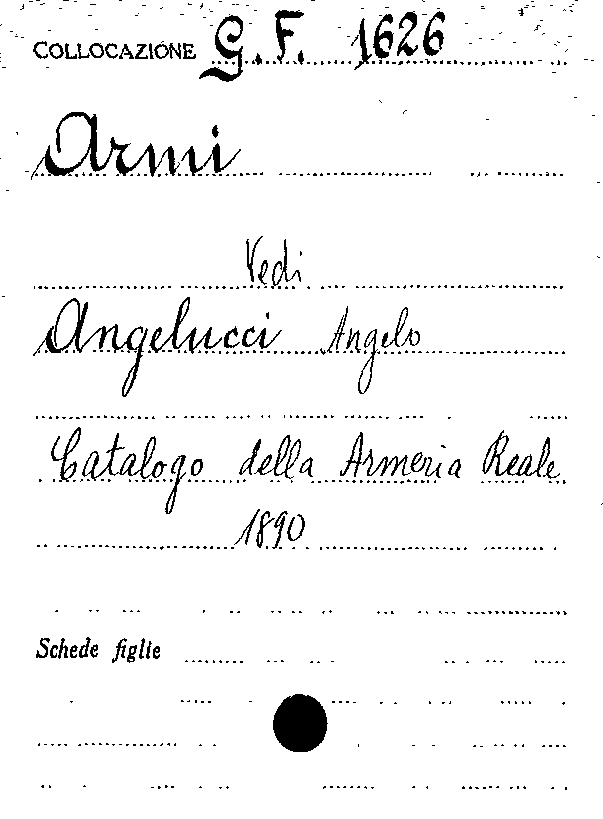 COLLOCAZIONE G.F. 1626
Armi
Vedi
Angelucci Angelo
Catalogo della Armeria Reale
1890
Schede figlie